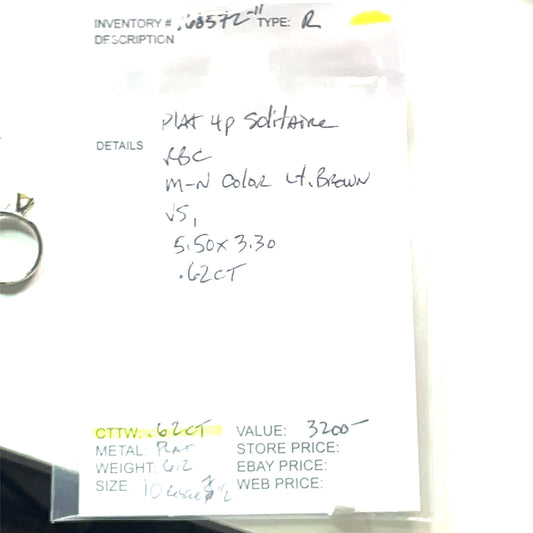 INVENTORY # .68572-11 TYPE: R
DESCRIPTION
PLAT 4P Solitaire
DETAILS
RBC
M-N Color Lt. Brown
VS1
5.50 x 3.30
.62CT
CTTW: .62CT VALUE: 3200-
METAL: Plat STORE PRICE:
WEIGHT: 6.2 EBAY PRICE:
SIZE 10 1/2 WEB PRICE: